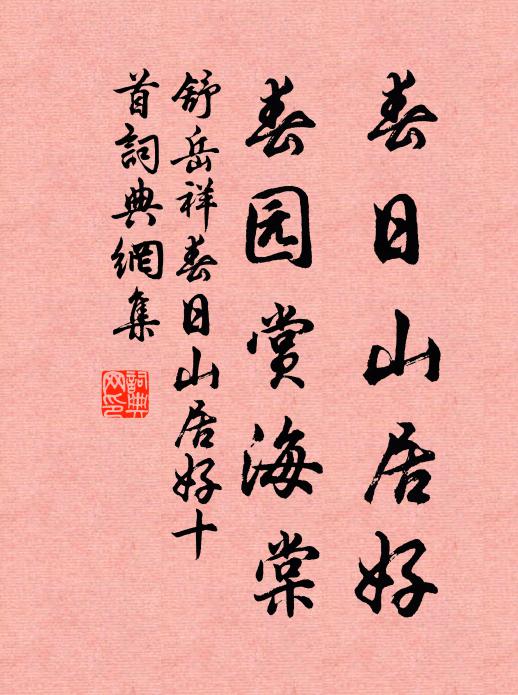 春日山居好
春园赏海棠
舒岳祥春日山居好十
首詞典網集
詞典
网印